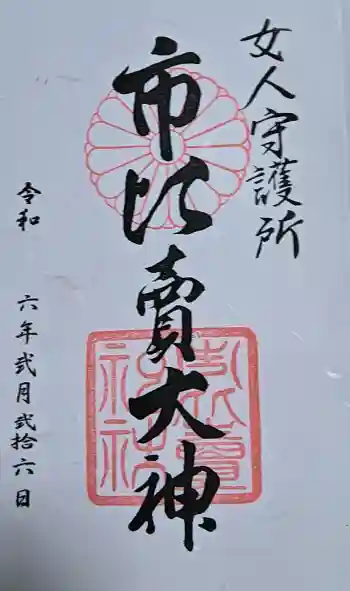 女人守護所
市比賣大神
令和 六年弐月弐拾六日
市比賣神社